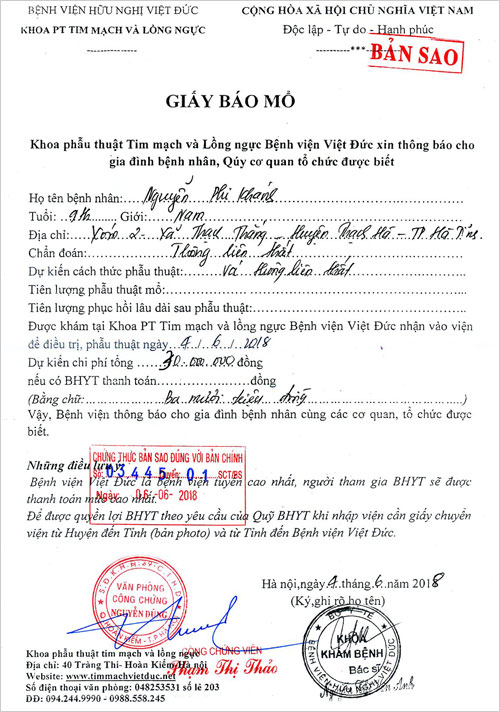 BỆNH VIỆN HỮU NGHỊ VIỆT ĐỨC
KHOA PT TIM MẠCH VÀ LỒNG NGỰC
CỘNG HÒA XÃ HỘI CHỦ NGHĨA VIỆT NAM
Độc lập - Tự do - Hạnh phúc
BẢN SAO
GIẤY BÁO MỔ
Khoa phẫu thuật Tim mạch và Lồng ngực Bệnh viện Việt Đức xin thông báo cho
gia đình bệnh nhân, Qúy cơ quan tổ chức được biết
Họ tên bệnh nhân: Nguyễn Phi Khánh
Tuổi: Giới: Nam
Địa chỉ: Xóm 2 - Xã Thạch Thắng - Huyện Thạch Hà - TP Hà Tĩnh.
Chẩn đoán: Thông liên thất
Dự kiến cách thức phẫu thuật: Vá thông liên thất
Tiên lượng phẫu thuật mổ:
Tiên lượng phục hồi lâu dài sau phẫu thuật:
Được khám tại Khoa PT Tim mạch và lồng ngực Bệnh viện Việt Đức nhận vào viện
để điều trị, phẫu thuật ngày 4 / 6 / 2018
Dự kiến chi phí tổng 30.000.000 đồng
nếu có BHYT thanh toán đồng
(Bằng chữ: Ba mươi triệu đồng)
Vậy, Bệnh viện thông báo cho gia đình bệnh nhân cùng các cơ quan, tổ chức được
biết.
CHỨNG THỰC BẢN SAO ĐÚNG VỚI BẢN CHÍNH
Số: 03445 Quyển: 01 SCT/BS
Ngày: 06-06-2018
Những điều lưu ý:
Bệnh viện Việt Đức là bệnh viện tuyến cao nhất, người tham gia BHYT sẽ được
thanh toán mức cao nhất.
Để được quyền lợi BHYT theo yêu cầu của Quỹ BHYT khi nhập viện cần giấy chuyển
viện từ Huyện đến Tỉnh (bản photo) và từ Tỉnh đến Bệnh viện Việt Đức.
Hà nội, ngày 4 tháng 6 năm 2018
(Ký, ghi rõ họ tên)
VĂN PHÒNG
CÔNG CHỨNG
NGUYỄN DŨNG
CÔNG CHỨNG VIÊN
Phạm Thị Thảo
BỘ Y TẾ
KHOA
KHÁM BỆNH
BỆNH VIỆN HỮU NGHỊ VIỆT ĐỨC
Bác sĩ
Khoa phẫu thuật Tim mạch và lồng ngực
Địa chỉ: 40 Tràng Thi- Hoàn Kiếm- Hà nội
Website: www.timmachvietduc.net
Số điện thoại văn phòng: 048253531 số lẻ 203
DĐ: 094.244.9990 - 0988.558.245